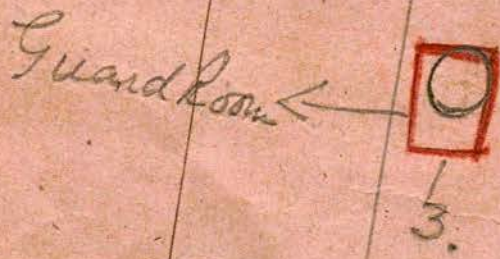 Guard Room
3.